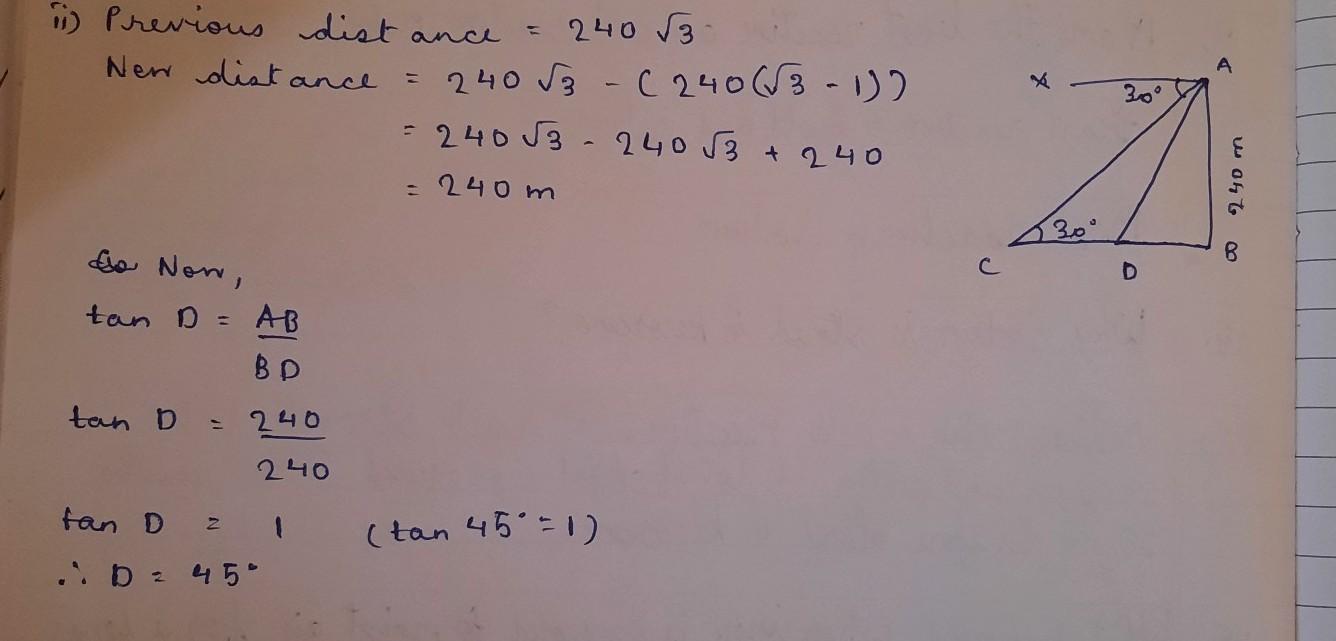 ii) Previous distance = 240 √3
New distance = 240 √3 - (240(√3 - 1))
= 240 √3 - 240 √3 + 240
= 240 m
X A
30°
240 m
30°
C D B
Now,
tan D = AB
BD
tan D = 240
240
tan D = 1 (tan 45° = 1)
∴ D = 45°